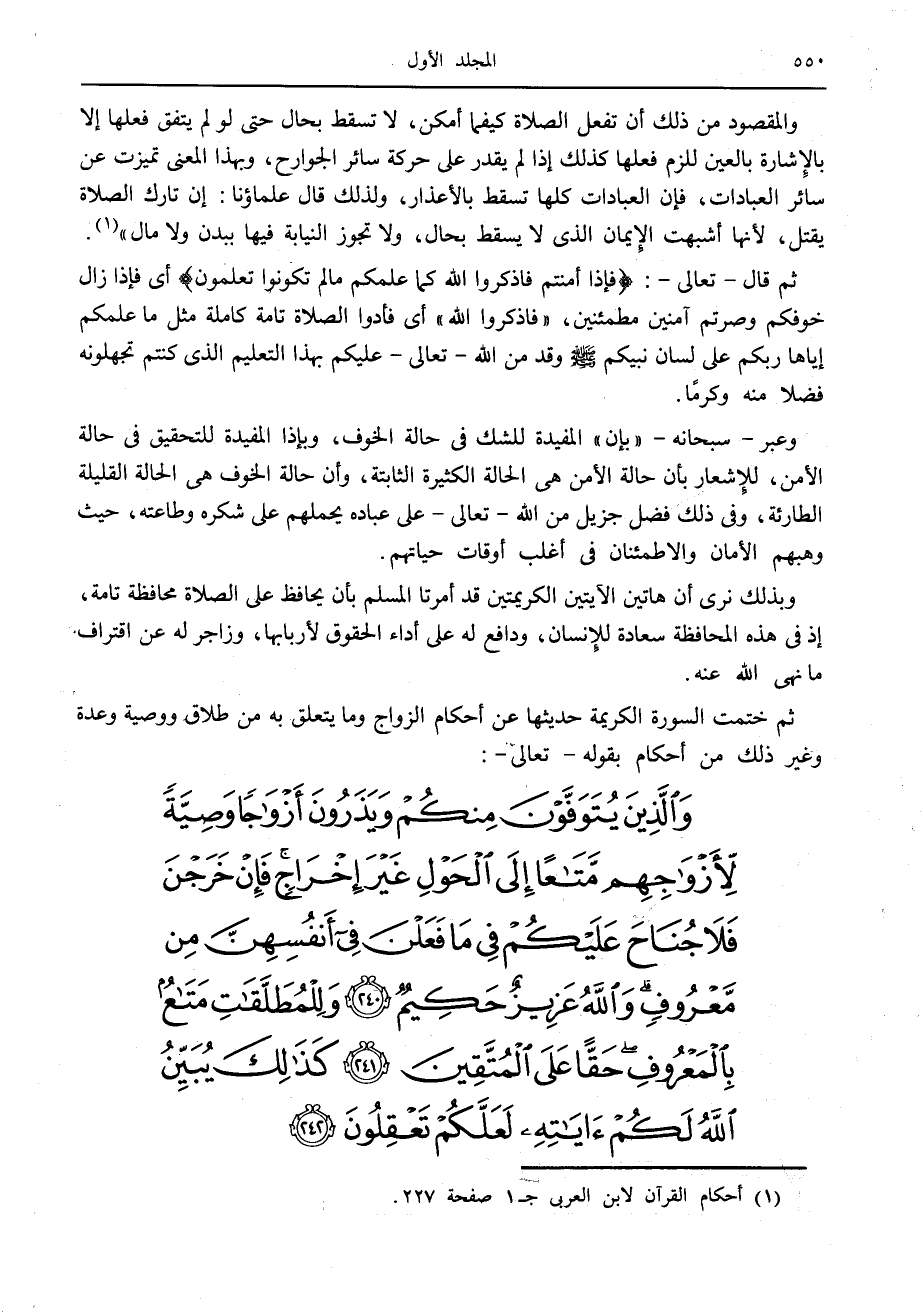 ٥٥٠
المجلد الأول
والمقصود من ذلك أن تفعل الصلاة كيفما أمكن، لا تسقط بحال حتى لو لم يتفق فعلها إلا
بالإشارة بالعين للزم فعلها كذلك إذا لم يقدر على حركة سائر الجوارح، وبهذا المعنى تميزت عن
سائر العبادات، فإن العبادات كلها تسقط بالأعذار، ولذلك قال علماؤنا: إن تارك الصلاة
يقتل، لأنها أشبهت الإيمان الذى لا يسقط بحال، ولا تجوز النيابة فيها ببدن ولا مال»(١).
ثم قال - تعالى - : ﴿فإذا أمنتم فاذكروا الله كما علمكم مالم تكونوا تعلمون﴾ أى فإذا زال
خوفكم وصرتم آمنين مطمئنين، «فاذكروا الله» أى فأدوا الصلاة تامة كاملة مثل ما علمكم
إياها ربكم على لسان نبيكم ﷺ وقد من الله - تعالى - عليكم بهذا التعليم الذى كنتم تجهلونه
فضلا منه وكرمًا.
وعبر - سبحانه - «بإن» المفيدة للشك فى حالة الخوف، وبإذا المفيدة للتحقيق فى حالة
الأمن، للإشعار بأن حالة الأمن هى الحالة الكثيرة الثابتة، وأن حالة الخوف هى الحالة القليلة
الطارئة، وفى ذلك فضل جزيل من الله - تعالى - على عباده يحملهم على شكره وطاعته، حيث
وهبهم الأمان والاطمئنان فى أغلب أوقات حياتهم.
وبذلك نرى أن هاتين الآيتين الكريمتين قد أمرتا المسلم بأن يحافظ على الصلاة محافظة تامة،
إذ فى هذه المحافظة سعادة للإنسان، ودافع له على أداء الحقوق لأربابها، وزاجر له عن اقتراف
ما نهى الله عنه.
ثم ختمت السورة الكريمة حديثها عن أحكام الزواج وما يتعلق به من طلاق ووصية وعدة
وغير ذلك من أحكام بقوله - تعالى - :
وَٱلَّذِينَ يُتَوَفَّوْنَ مِنكُمْ وَيَذَرُونَ أَزْوَٰجًا وَصِيَّةً
لِّأَزْوَٰجِهِم مَّتَٰعًا إِلَى ٱلْحَوْلِ غَيْرَ إِخْرَاجٍ ۚ فَإِنْ خَرَجْنَ
فَلَا جُنَاحَ عَلَيْكُمْ فِى مَا فَعَلْنَ فِىٓ أَنفُسِهِنَّ مِن
مَّعْرُوفٍ ۗ وَٱللَّهُ عَزِيزٌ حَكِيمٌ ﴿٢٤٠﴾ وَلِلْمُطَلَّقَٰتِ مَتَٰعٌۢ
بِٱلْمَعْرُوفِ ۖ حَقًّا عَلَى ٱلْمُتَّقِينَ ﴿٢٤١﴾ كَذَٰلِكَ يُبَيِّنُ
ٱللَّهُ لَكُمْ ءَايَٰتِهِۦ لَعَلَّكُمْ تَعْقِلُونَ ﴿٢٤٢﴾
(١) أحكام القرآن لابن العربى جـ١ صفحة ٢٢٧.